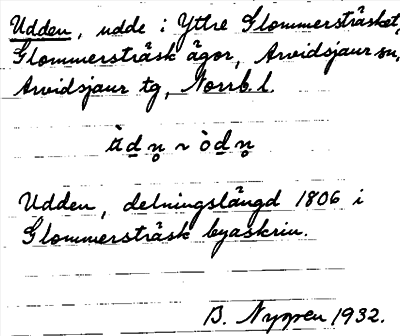 Udden, udde i Yttre Glommersträsket,
Glommersträsk ägor, Arvidsjaur sn,
Arvidsjaur tg, Norrb. l.
ùdn̥ ~ òdn̥
Udden, delningslängd 1806 i
Glommersträsk byaskrin.
B. Nyppen 1932.